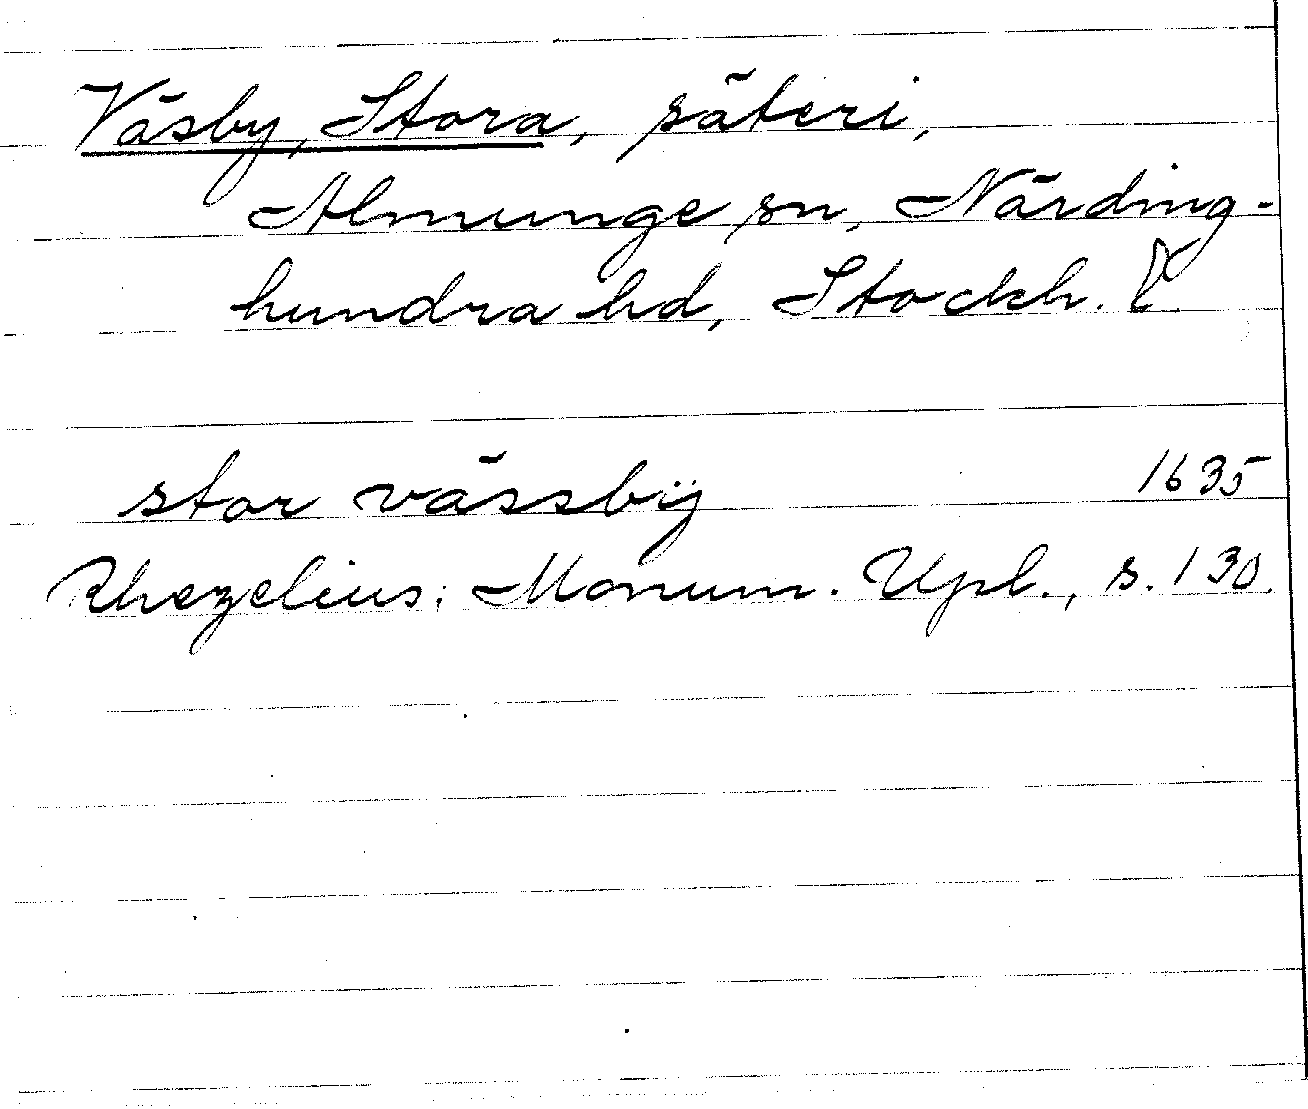 Väsby, Stora, säteri,
Almunge sn, Närding-
hundra hd, Stockh. l.
stor vässbÿ 1635
Rhezelius: Monum. Upl., s. 130.